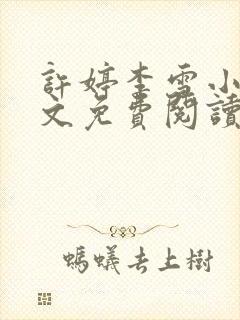 許婷李雪小
文免費閱讀
螞蟻去上樹